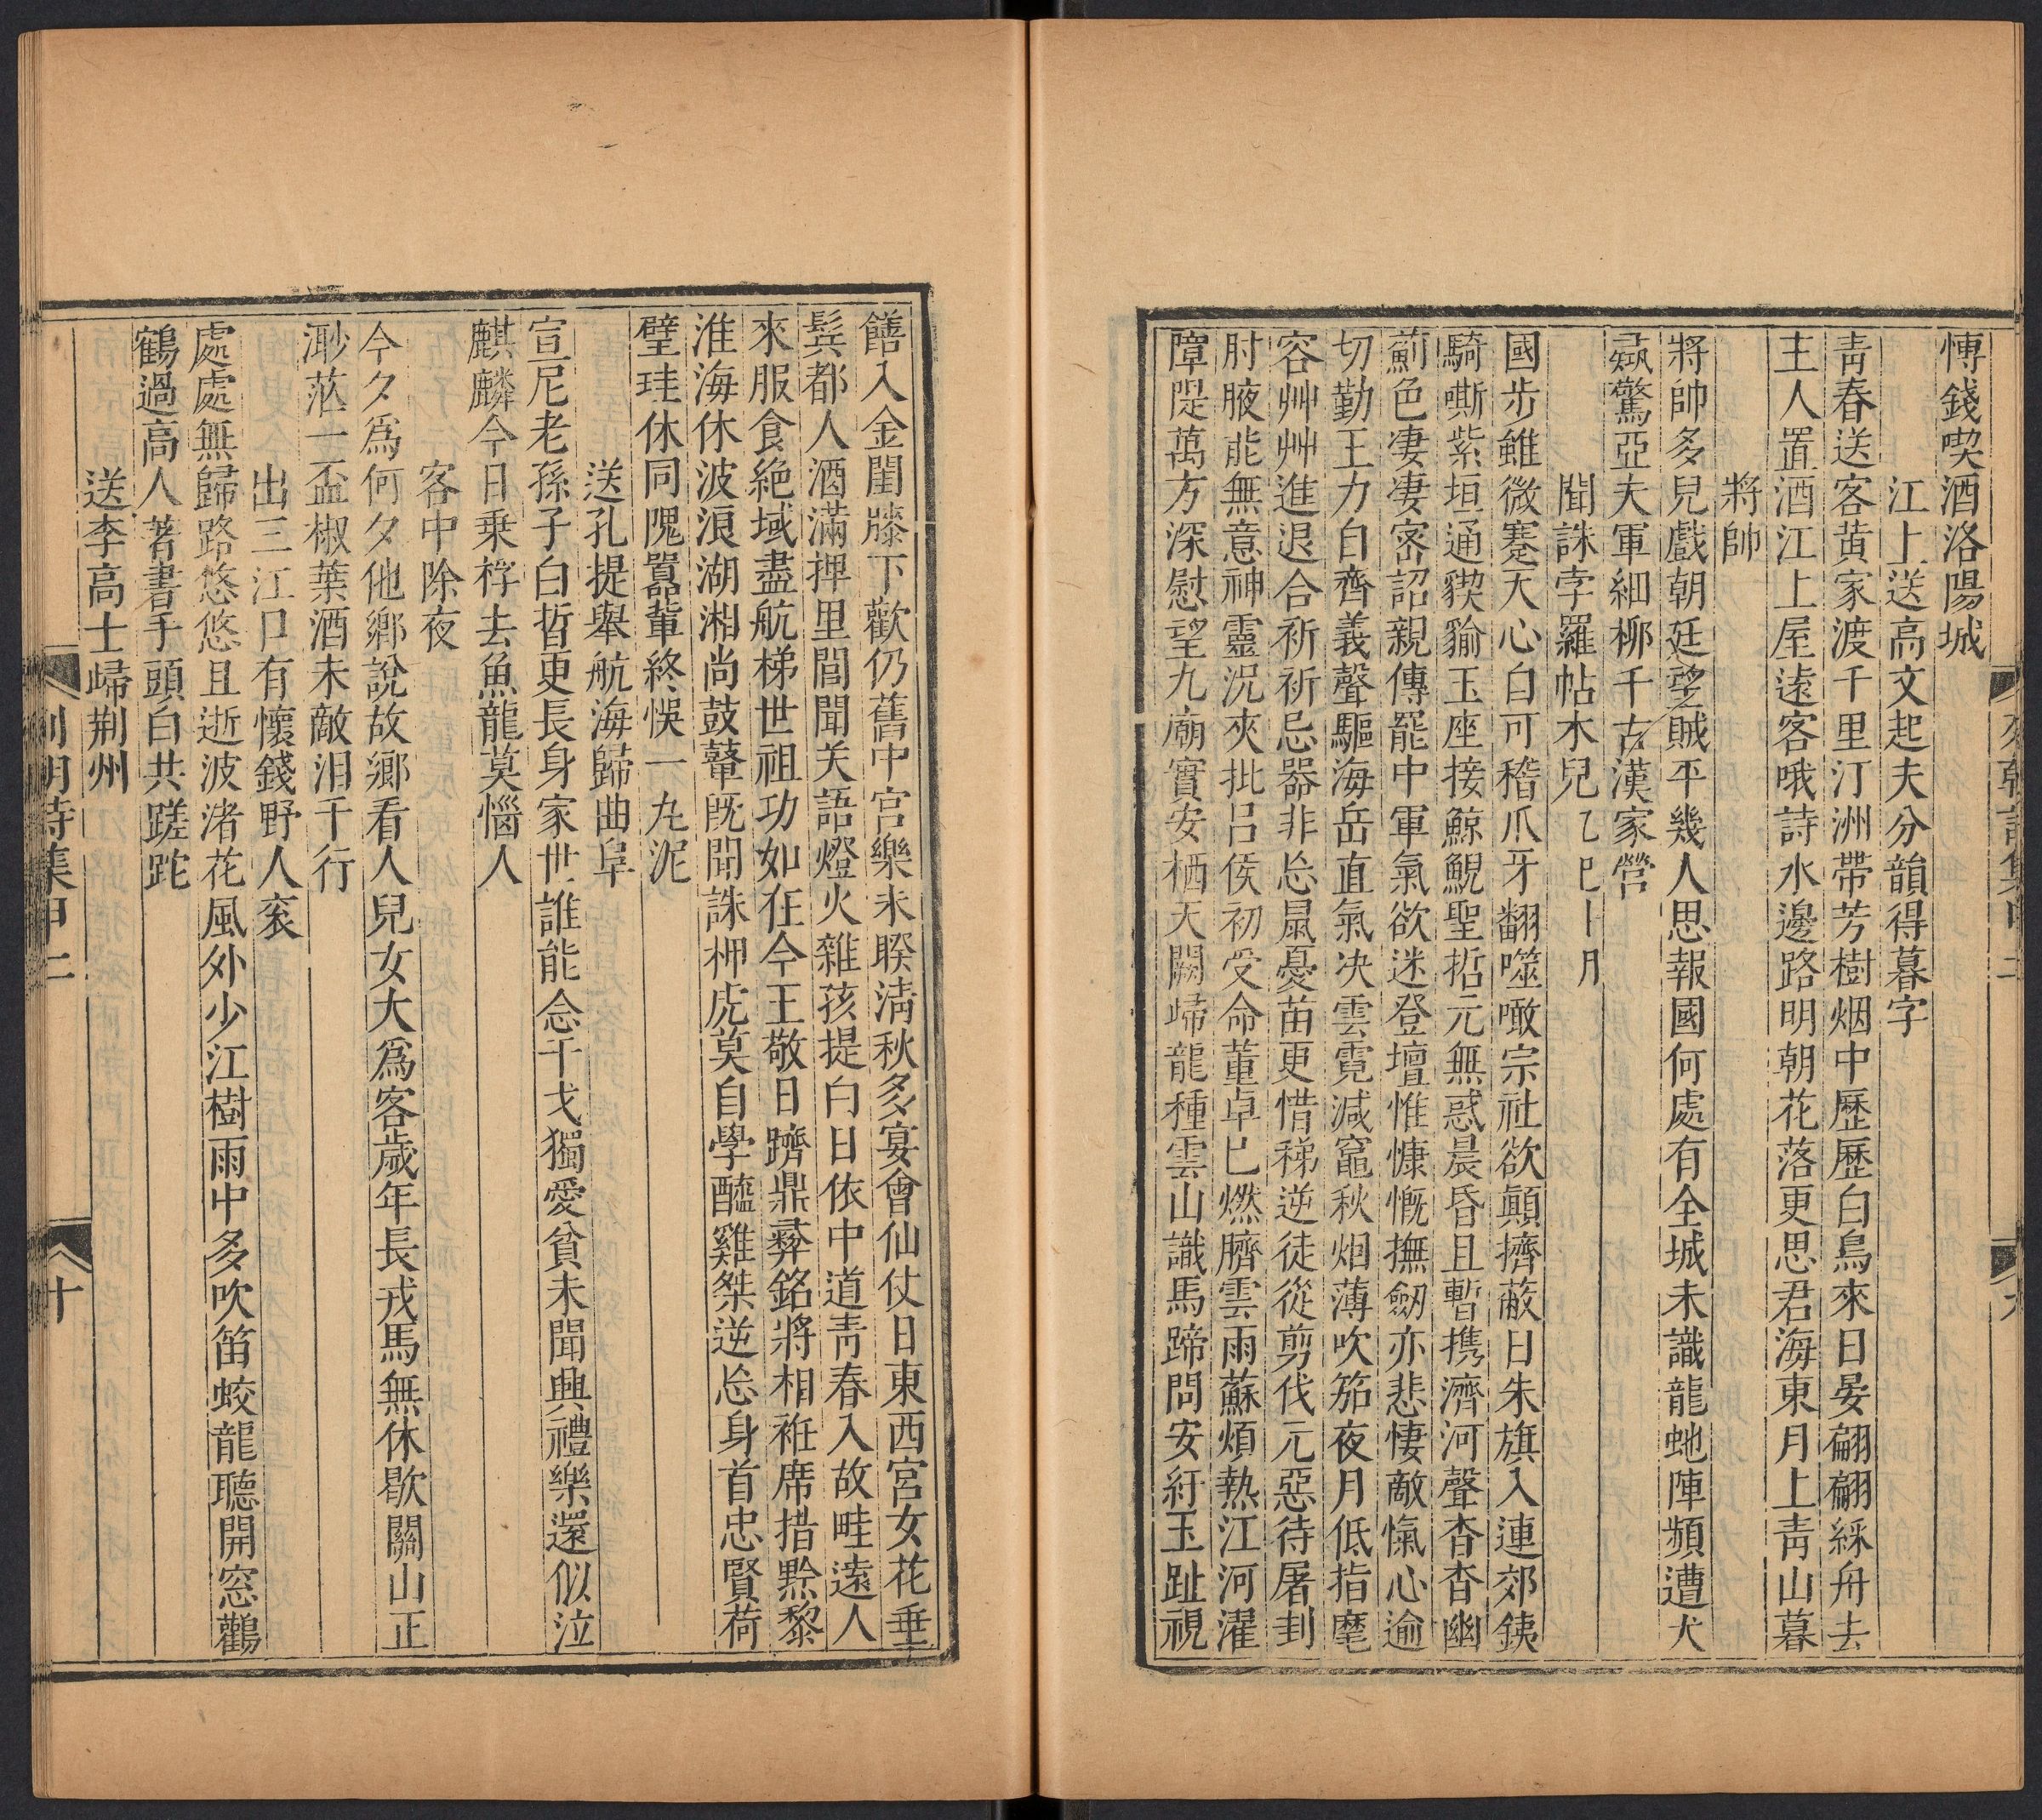 慱錢喫酒洛陽城
江上送高文起夫分韻得暮字
青春送客黄家渡千里汀洲帶芳樹烟中歷歷白鳥來日晏翩翩綵舟去
主人置酒江上屋逺客哦詩水邊路明朝花落更思君海東月上青山暮
將帥
將帥多兒戲朝廷望賊平幾人思報國何處有全城未識龍虵陣頻遭犬
彘驚亞夫軍細柳千古漢家營
聞誅孛羅帖木兒乙巳十月
國步雖微蹇天心自可稽爪牙翻噬噉宗社欲顛擠蔽日朱旗入連郊銕
騎嘶紫垣通猰貐玉座接鯨鯢聖哲元無惑晨昏且暫携濟河聲杳杳幽
薊色凄凄宻詔親傳罷中軍氣欲迷登壇惟慷慨撫劒亦悲悽敵愾心逾
切勤王力自齊義聲驅海岳直氣决雲霓減竈秋烟薄吹笳夜月低指麾
容艸艸進退合祈祈忌器非㤀鼠憂苗更惜稊逆徒從剪伐元惡待屠刲
肘腋能無意神靈況夾批吕侯初受命董卓已燃臍雲雨蘇煩熱江河濯
障隄萬方深慰望九廟實安栖天闕歸龍種雲山識馬蹄問安紆玉趾視
饍入金閨膝下歡仍舊中宫樂未睽清秋多宴會仙仗日東西宮女花垂
髸都人酒滿押里閭聞关語燈火雜孩提白日依中道青春入故畦遠人
來服食絶域盡航梯世祖功如在今王敬日躋鼎彛銘將相袵席措黔黎
淮海休波浪湖湘尚鼓鼙旣聞誅柙虎莫自學醯雞桀逆㤀身首忠賢荷
璧珪休同隗嚻輩終悞一丸泥
送孔提舉航海歸曲阜
宣尼老孫子白晳更長身家世誰能念干戈獨愛貧未聞興禮樂還似泣
麒麟今日乗桴去魚龍莫惱人
客中除夜
今夕爲何夕他鄉說故鄉看人兒女大爲客歲年長戎馬無休歇關山正
渺茫一盃椒葉酒未敵泪千行
出三江口有懷錢野人衮
處處無歸路悠悠且逝波渚花風外少江樹雨中多吹笛蛟龍聽開窓鸛
鶴過高人著書手頭白共蹉跎
送李高士歸荆州
列朝詩集甲二
十